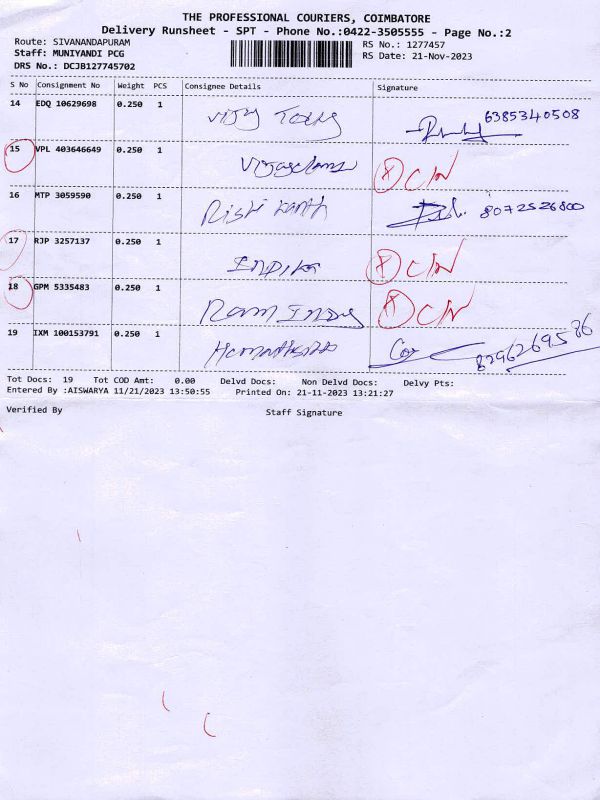 THE PROFESSIONAL COURIERS, COIMBATORE
Delivery Runsheet - SPT - Phone No.:0422-3505555 - Page No.:2
Route: SIVANANDAPURAM
Staff: MUNIYANDI PCG
DRS No.: DCJB127745702
RS No.: 1277457
RS Date: 21-Nov-2023
S No Consignment No Weight PCS Consignee Details Signature
14 EDQ 10629698 0.250 1 6385340508
15 VPL 403646649 0.250 1
16 MTP 3059590 0.250 1 Rishi Kanth 8072526800
17 RJP 3257137 0.250 1
18 GPM 5335483 0.250 1
19 IXM 100153791 0.250 1 8296269586
Tot Docs: 19 Tot COD Amt: 0.00 Delvd Docs: Non Delvd Docs: Delvy Pts:
Entered By :AISWARYA 11/21/2023 13:50:55 Printed On: 21-11-2023 13:21:27
Verified By Staff Signature